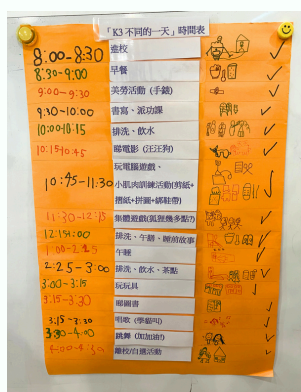 「K3不同的一天」時間表
8:00-8:30 進校
8:30-9:00 早餐
9:00-9:30 美勞活動 (手錶)
9:30-10:00 書寫、派功課
10:00-10:15 排洗、飲水
10:15-10:45 睇電影 (汪汪狗)
玩電腦遊戲、
10:45-11:30 小肌肉訓練活動(剪紙+
摺紙+拼圖+綁鞋帶)
11:30-12:15 集體遊戲(狐狸幾多點?)
12:15-1:00 排洗、午膳、睡前故事
1:00-2:25 午睡
2:25-3:00 排洗、飲水、茶點
3:00-3:15 玩玩具
3:15-3:20 睇圖書
3:15-3:30 唱歌 (學貓叫)
3:30-4:00 跳舞 (加加油!)
4:00-4:30 離校/自選活動